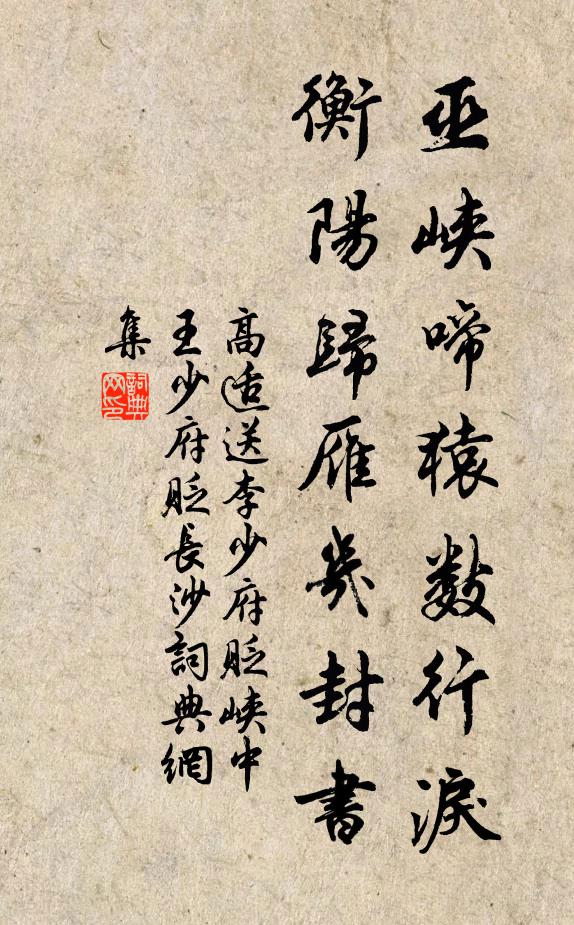 巫峽啼猿數行淚
衡陽歸雁幾封書
高適送李少府貶峽中
王少府貶長沙詞典網
集
詞典
网印